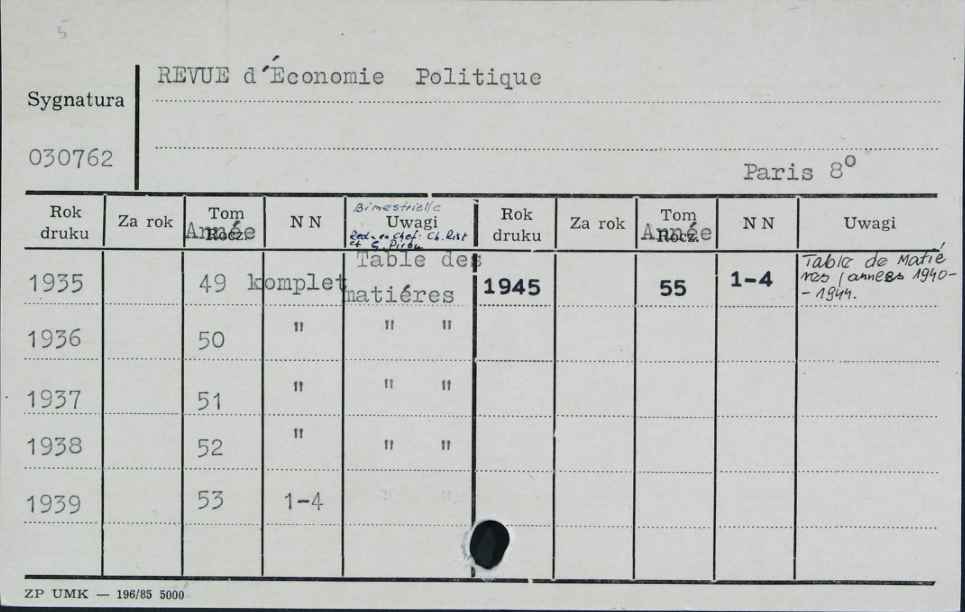 5
REVUE d'Économie Politique
Sygnatura
030762
Paris 8º
Rok druku Za rok Tom Rocz. Année N N Bimestrielle Uwagi Red. en Chef. Ch. Rist et G. Pirou Rok druku Za rok Tom Rocz. Année N N Uwagi
1935 49 komplet Table des matiéres 1945 55 1-4 Table de Matiéres (annees 1940-1944.
1936 50 " " "
1937 51 " " "
1938 52 " " "
1939 53 1-4 " "
ZP UMK — 196/85 5000